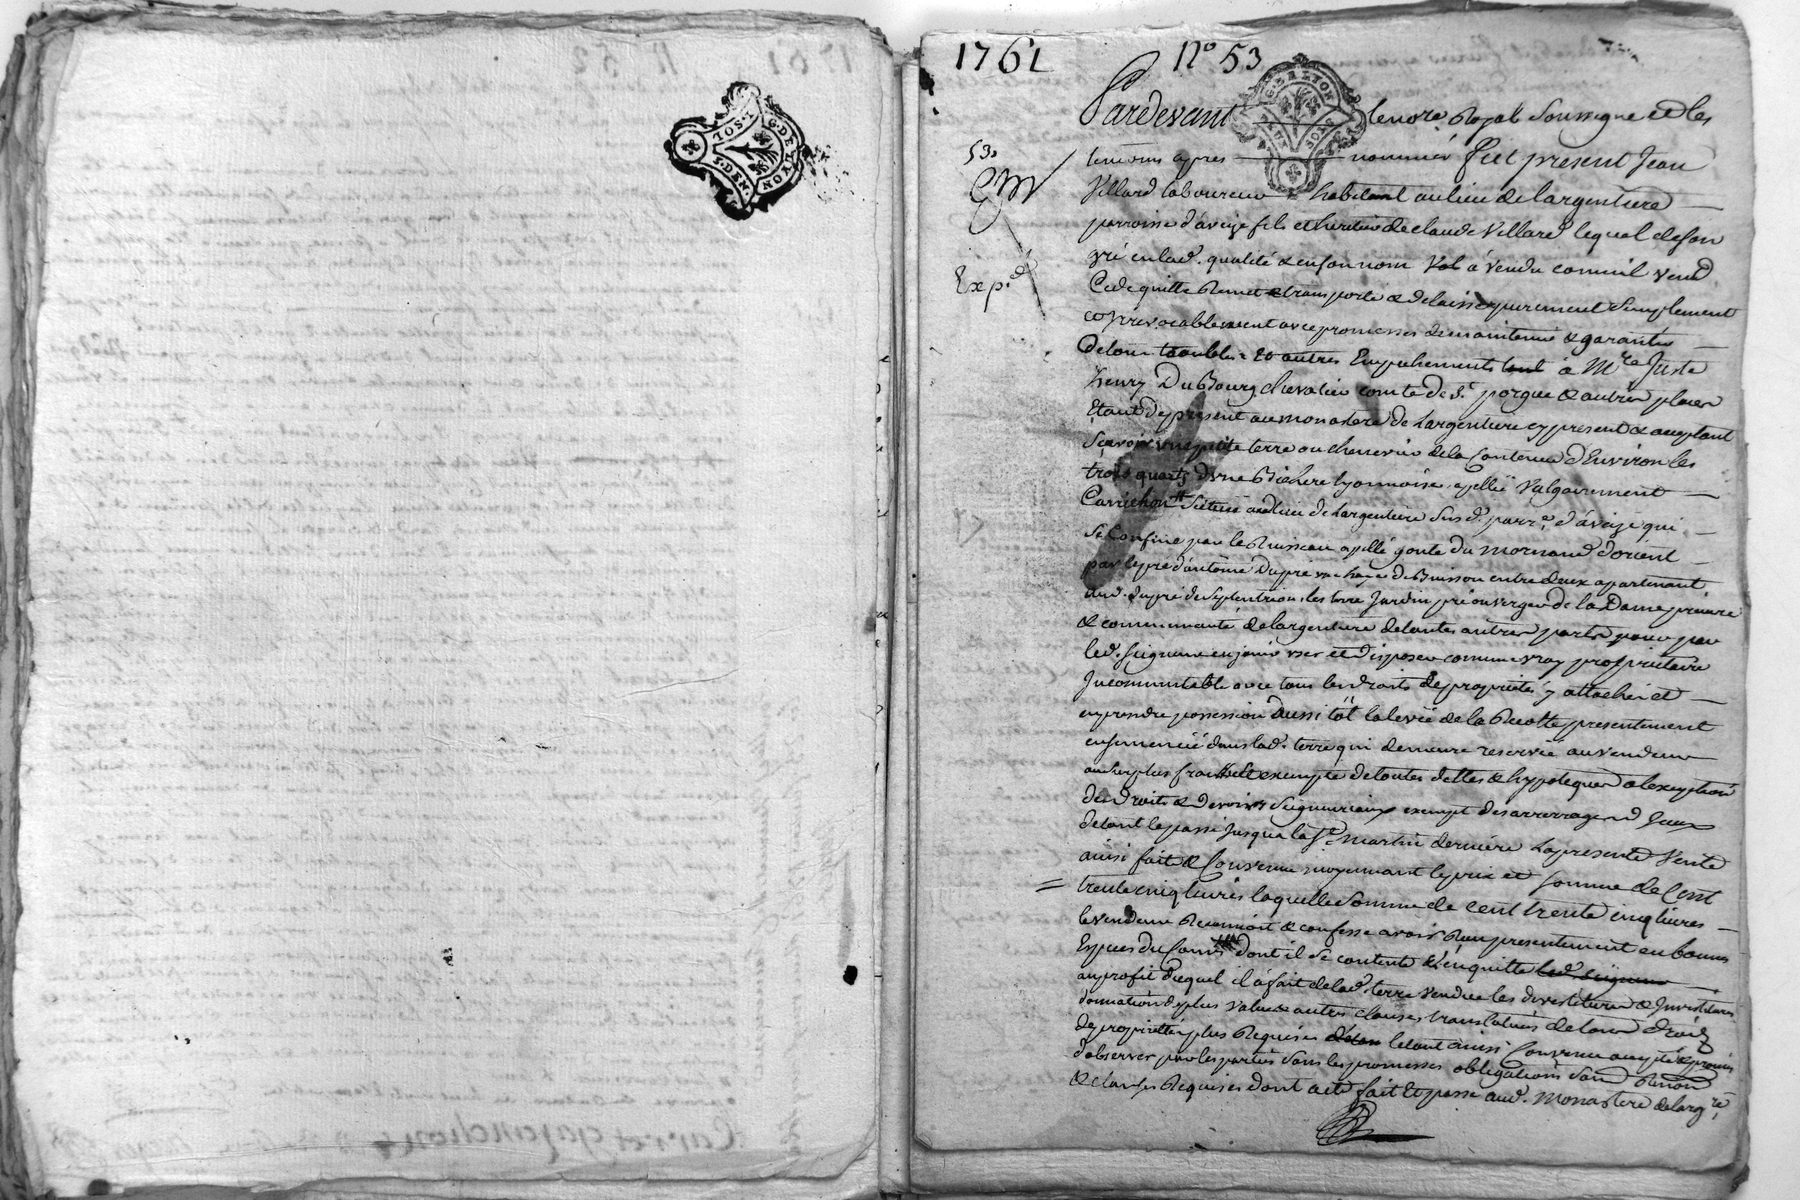 I.SOL
G.DE LYON
5.DEN
1761 No 53
53.
Exp.é
Pardevant le no.re Royal Soussigné et les
temoins apres nommés fut present Jean
Villard laboureur habitant au lieu de largentiere
parroisse d'aveize fils et heritier de claude Villard lequel de son
gré en lad. qualité & en son nom à vendu comme il vend
Cede quitte Remet & transporte & delaisse purement Simplement
et irrevocablement avec promesses de maintenir & garantir
De tous troubles Et autres Empechements à M.re Juste
henry DuBourg chevalier comte de S.t porgue & autres places
Etant de present au monastere de Largentiere cy present & acceptant
Scavoir une petite terre ou cheneviere de la Contenue d'Environ les
trois quarts d'une Bichere lyonnoise apellée Vulgairement
Situee audit lieu de Largentiere Susd. parr.e d'aveize qui
Se Confine par le Ruisseau apellé goute du mornand d'orient
par le pré d'antoine Dupré une haye de Buisson entre deux appartenant
aud. Dupré de Septentrion, les terre Jardin pré ou verger de la Dame prieure
& communauté de largentiere de toutes autres parts pour par
led. Seigneur en jouir user et disposer comme vray proprietaire
Incommutable avec tous les droits de proprietés y attachés et
en prendre possession Aussitôt la levée de la Recolte presentement
ensemencée dans lad. terre qui demeure reservée au vendeur
au surplus franche & exempte de toutes dettes & hypoteques à l'exception
des Droits & Devoirs Seigneuriaux exempt des arrerages d'Iceux
de tout le passé Jusqua la S.t martin derniere La presente Vente
ainsi faite & Convenue moyennant le prix et Somme de Cent
trente cinq livres laquelle Somme de cent trente cinq livres
le vendeur Reconnoit & confesse avoir Reçu presentement en bonnes
Especes du Cours dont il Se contente & en quitte led. Seigneur
au profit duquel il à fait de lad. terre vendue les divestitures & Investitures
donnation de plus value & autres clauses translatives de tous droits
de proprietté plus Requises le tout ainsi Convenu accepté & promis
d'observer par les parties Sous les promesses obligations Soud Renon
& clauses Requises dont acte fait Et passé aud. Monastere de larg.re